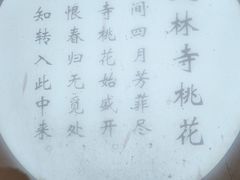 林寺桃花
间四月芳菲尽
寺桃花始盛开
恨春归无觅处
知转入此中来